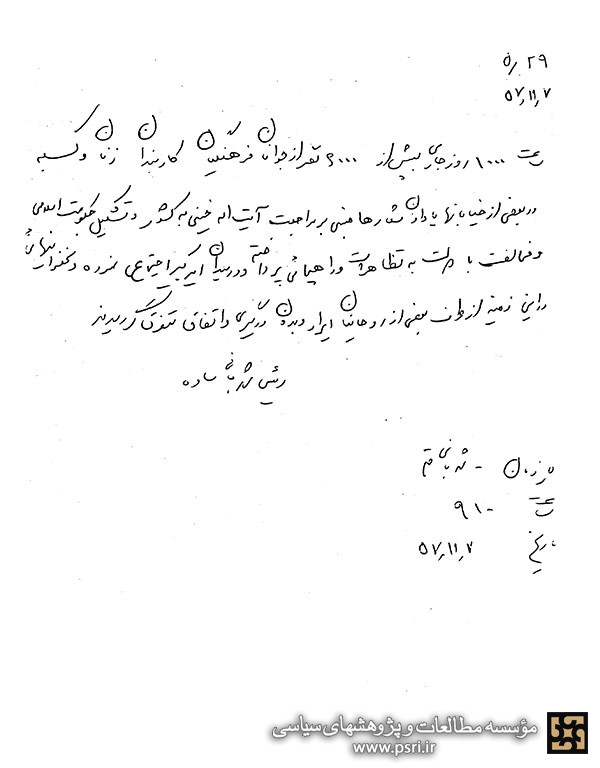 ۲۹/۵
۵۷/۱۱/۷
ساعت ۱۰۰۰ روز جاری بیش از ۶۰۰۰ نفر از جوانان فرهنگیان کارمندان زنان و کسبه
در بعضی از خیابانها با دادن شعارها مبنی بر مراجعت آیت اله خمینی به کشور و تشکیل حکومت اسلامی
و مخالفت با دولت به تظاهرات و راهپیمائی پرداخته و در میدان امیرکبیر اجتماع نموده و سخنرانیهائی
در این زمینه از طرف بعضی از روحانیان ایراد و بدون درگیری و اتفاق متفرق گردیدند
رئیس شهربانی ساوه
شهربانی قم
ساعت ۹۱۰
تاریخ ۵۷/۱۱/۷
مؤسسه مطالعات و پژوهشهای سیاسی
www.psri.ir